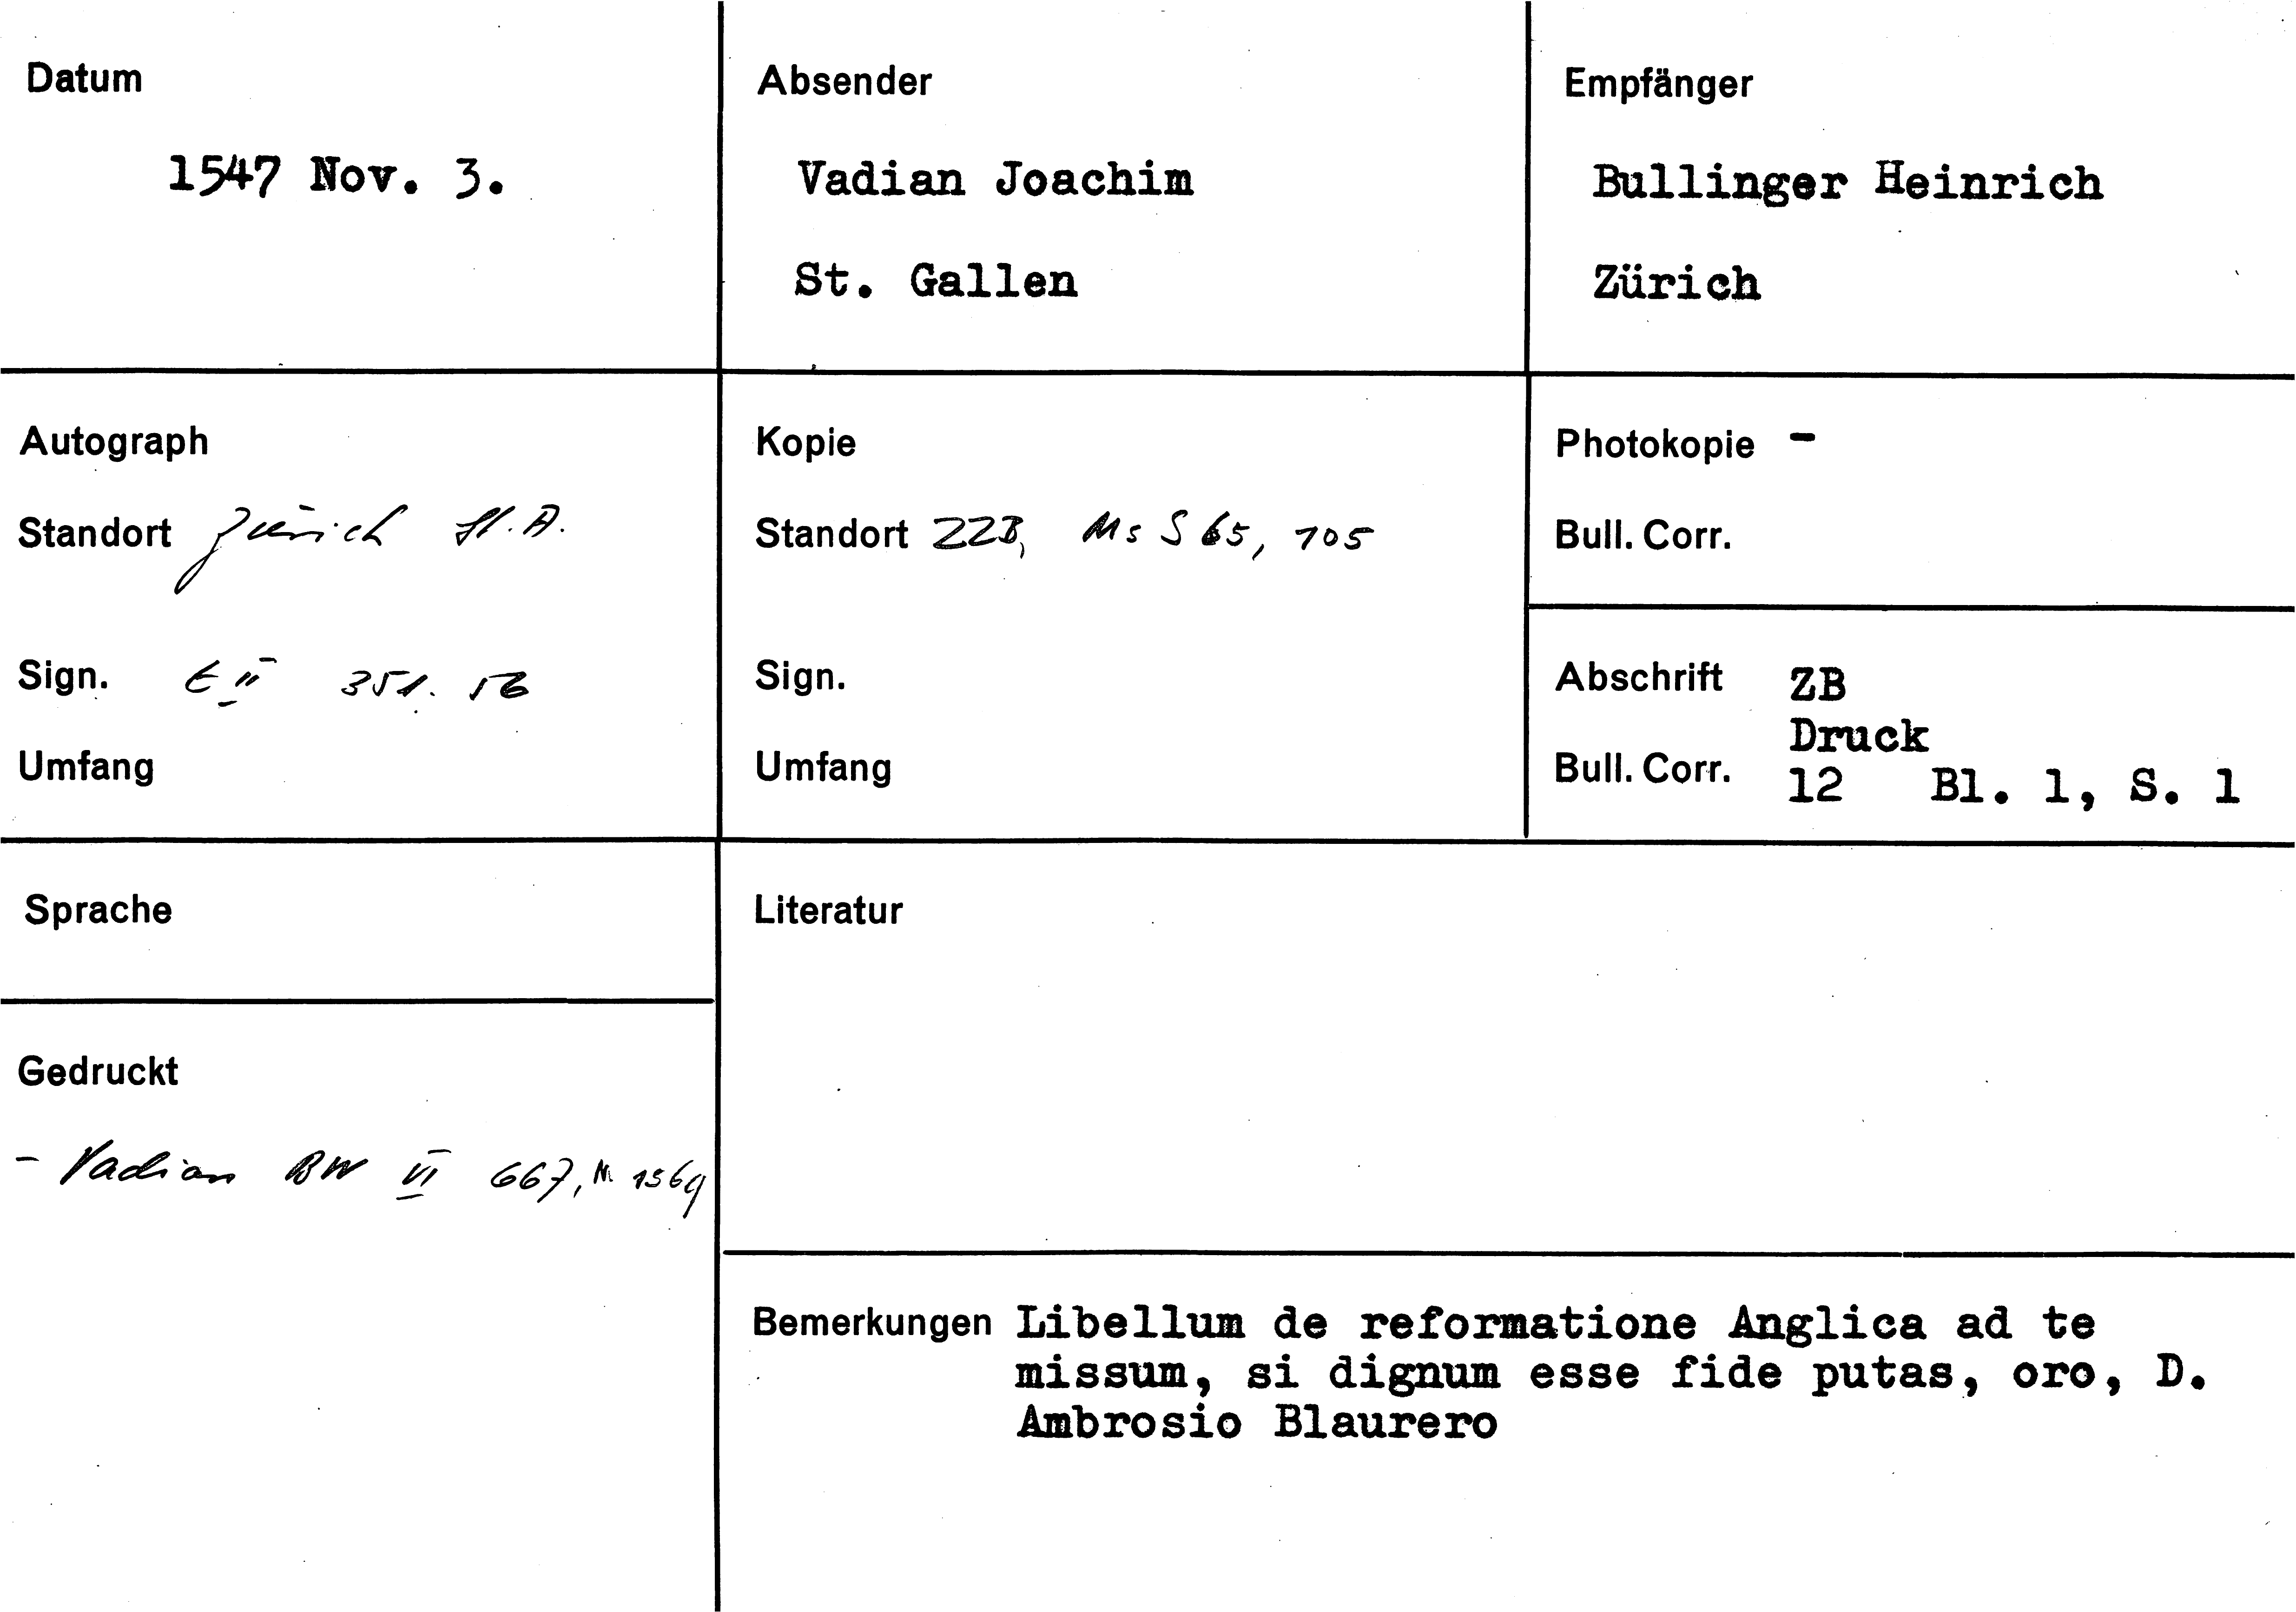 Datum
1547 Nov. 3.
Absender
Vadian Joachim
St. Gallen
Empfänger
Bullinger Heinrich
Zürich
Autograph
Standort Zürich St. A.
Sign. E II 351. 56
Umfang
Kopie
Standort ZZB, Ms S 65, 105
Sign.
Umfang
Photokopie -
Bull. Corr.
Abschrift ZB
Druck
Bull. Corr. 12 Bl. 1, S. 1
Sprache
Gedruckt
- Vadian BW VI 667, N. 1569
Literatur
Bemerkungen Libellum de reformatione Anglica ad te
missum, si dignum esse fide putas, oro, D.
Ambrosio Blaurero